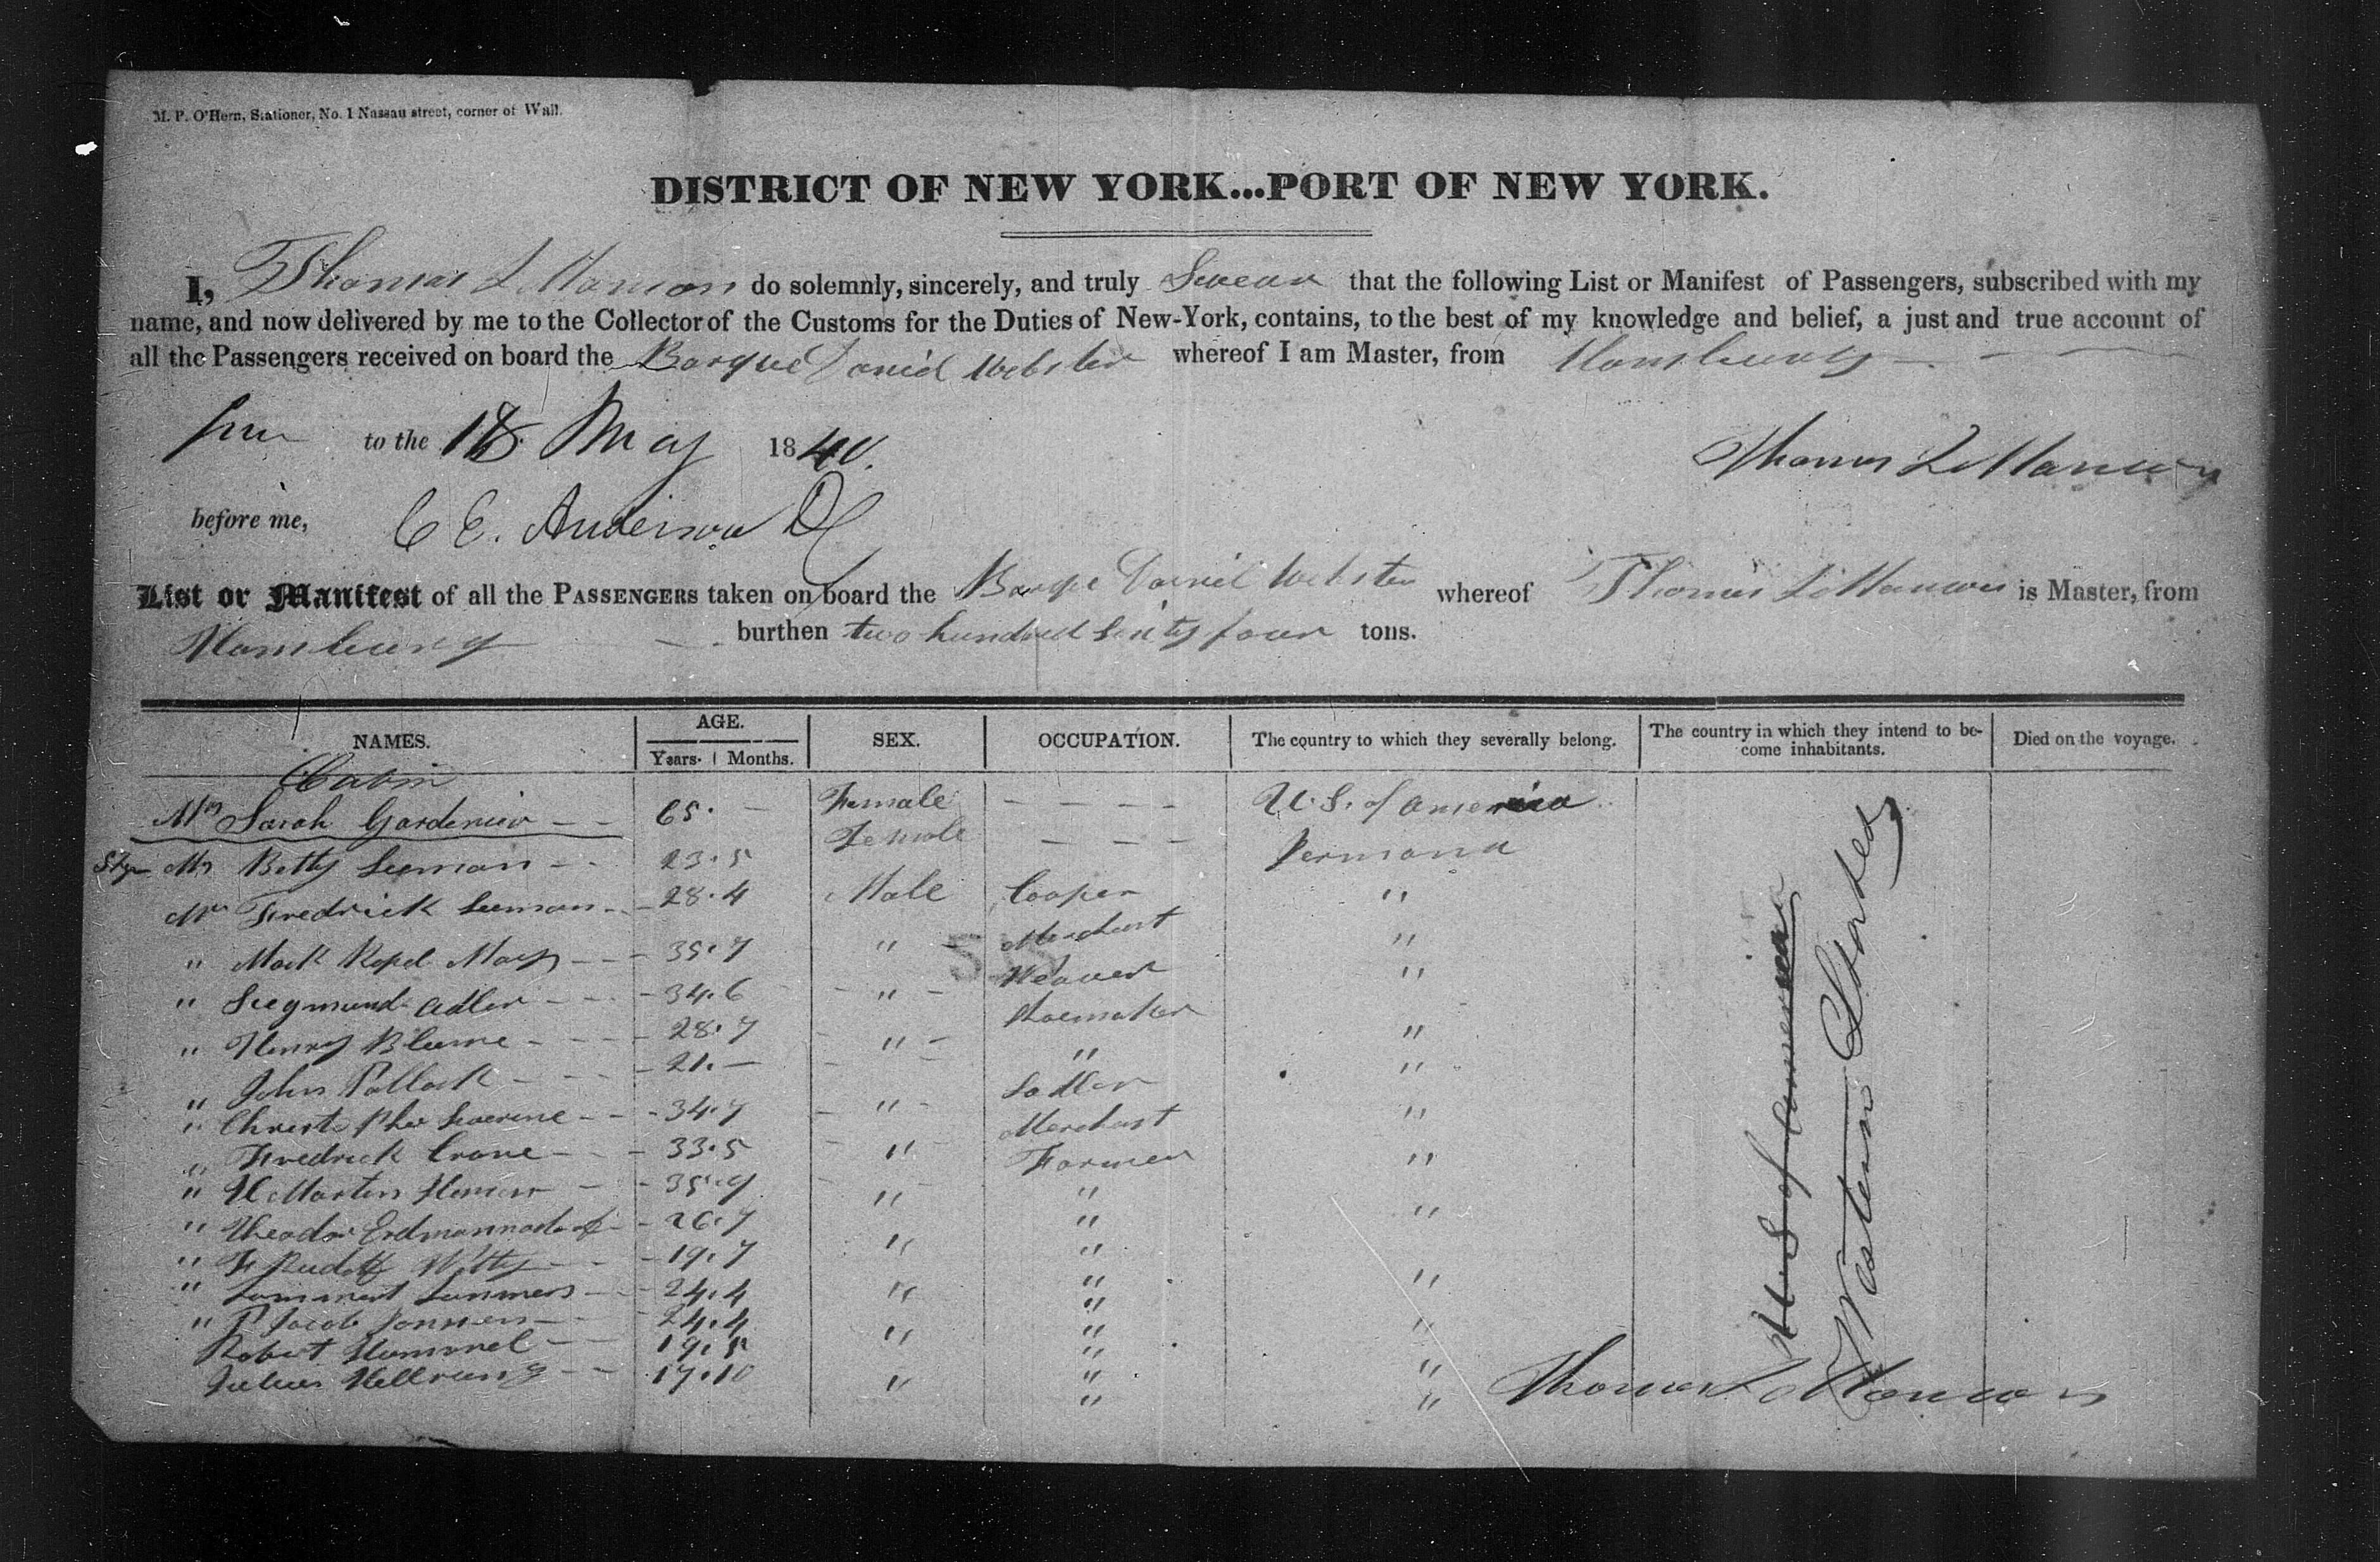 M. P. O'Hern, Stationer, No. 1 Nassau street, corner of Wall.
DISTRICT OF NEW YORK...PORT OF NEW YORK.
I, Thomas L. Manson do solemnly, sincerely, and truly Swear that the following List or Manifest of Passengers, subscribed with my
name, and now delivered by me to the Collector of the Customs for the Duties of New-York, contains, to the best of my knowledge and belief, a just and true account of
all the Passengers received on board the Barque Daniel Webster whereof I am Master, from Hamburg
to the 18 May 1840.
Thomas L Manson
before me, C E. Anderson DC
List or Manifest of all the PASSENGERS taken on board the Barque Daniel Webster whereof Thomas L Manson is Master, from
Hamburg burthen two hundred sixty four tons.
NAMES. AGE. Years. Months. SEX. OCCUPATION. The country to which they severally belong. The country in which they intend to become inhabitants. Died on the voyage.
Cabin
Mrs Sarah Gardenier 65. Female U. S. of America
Stge Mrs Betty Seeman 23.5 Female Germany
Mr Fredrick Seeman 28.4 Male Cooper "
" Mack Kopel May 35.7 " Merchant "
" Siegmund Adler 34.6 " Weaver "
" Henry Blume 28.7 " Shoemaker "
" John Pollack 21. "
" Severine 34.7 " Sadler "
" Fredrick Crone 33.5 " Merchant "
" H Martin 35.9 " Farmer "
" Theodor 26.7 " "
" F Rudolf Witty 19.7 " "
" 24.4 " "
" P Jacob 24.4 " "
Robert Hummel 19.5 " "
Julius Hellrung 17.10 " "
U S of America
Western
Thomas L Manson